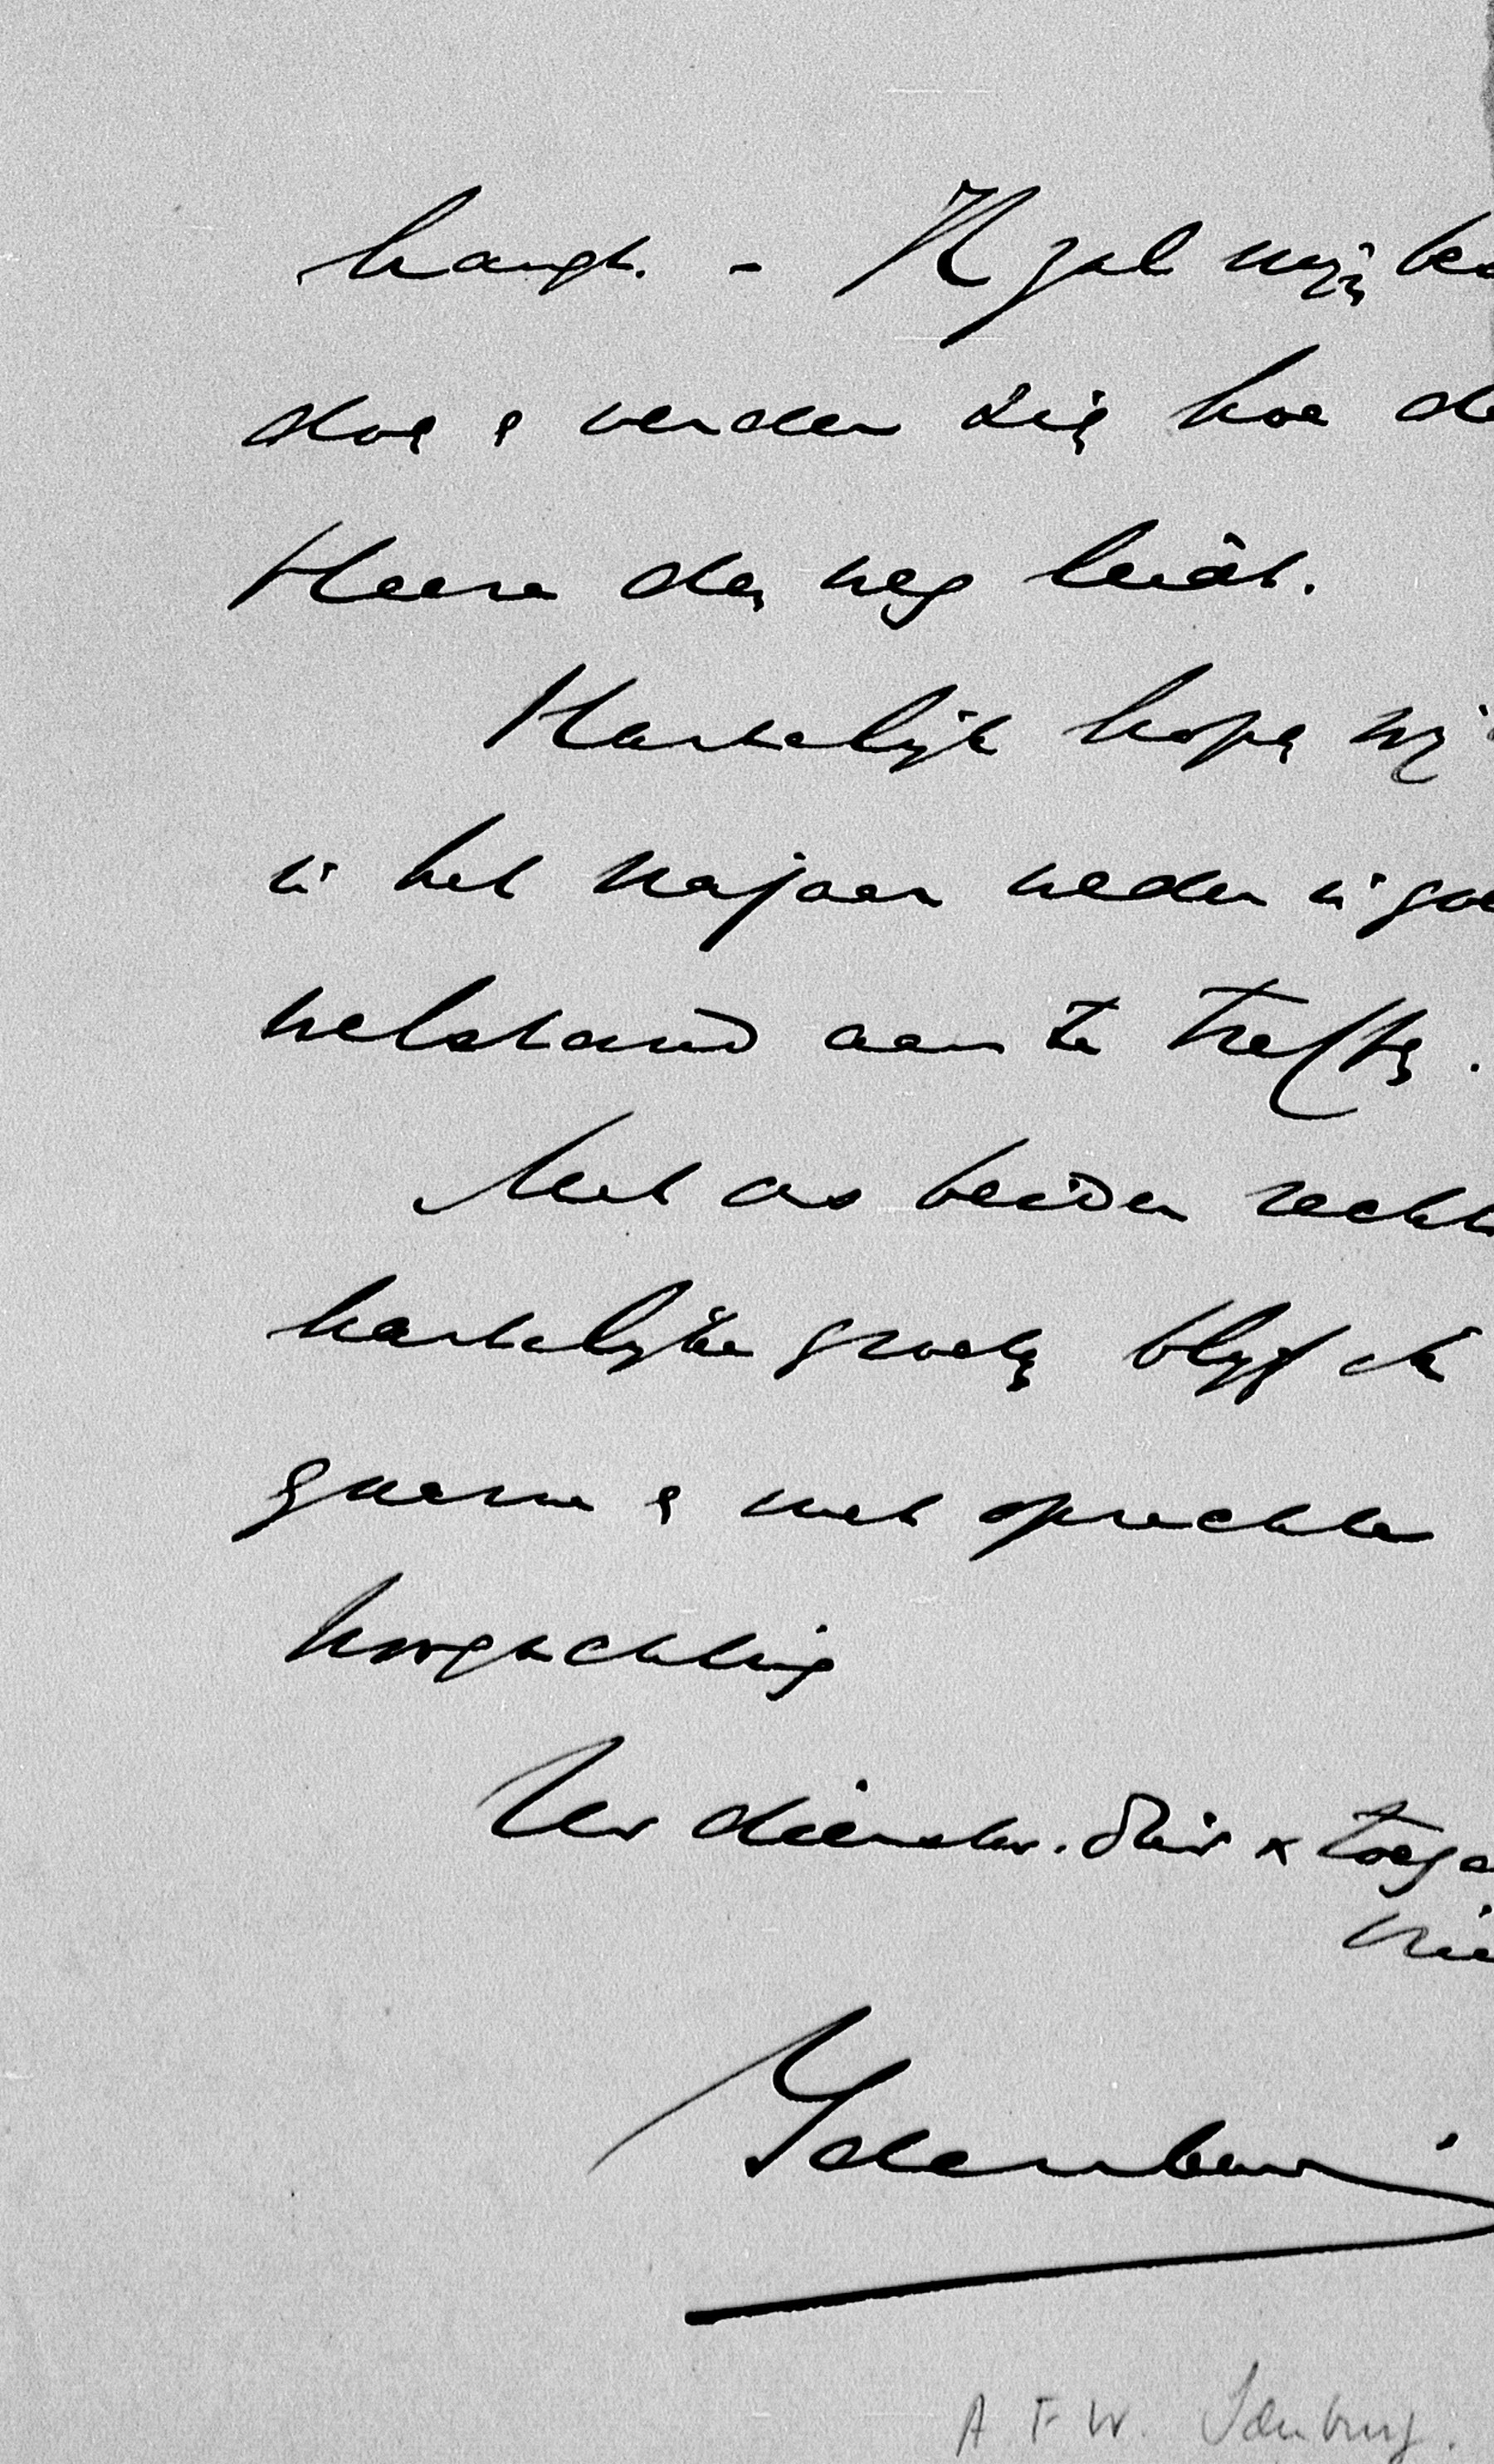 hangt. - Ik zal mijn bes
doen & verder zien hoe de
Heere den weg leidt.
Hartelijk hopen wij U
in het najaar weder in goe
welstand aan te treffen.
Met ons beider recht
hartelijke groeten blijf ik
gaarne & met oprechte
hoogachting
Uw dienstw. dnr & toege
vrie
Idenburg
A. F. W. Idenburg.